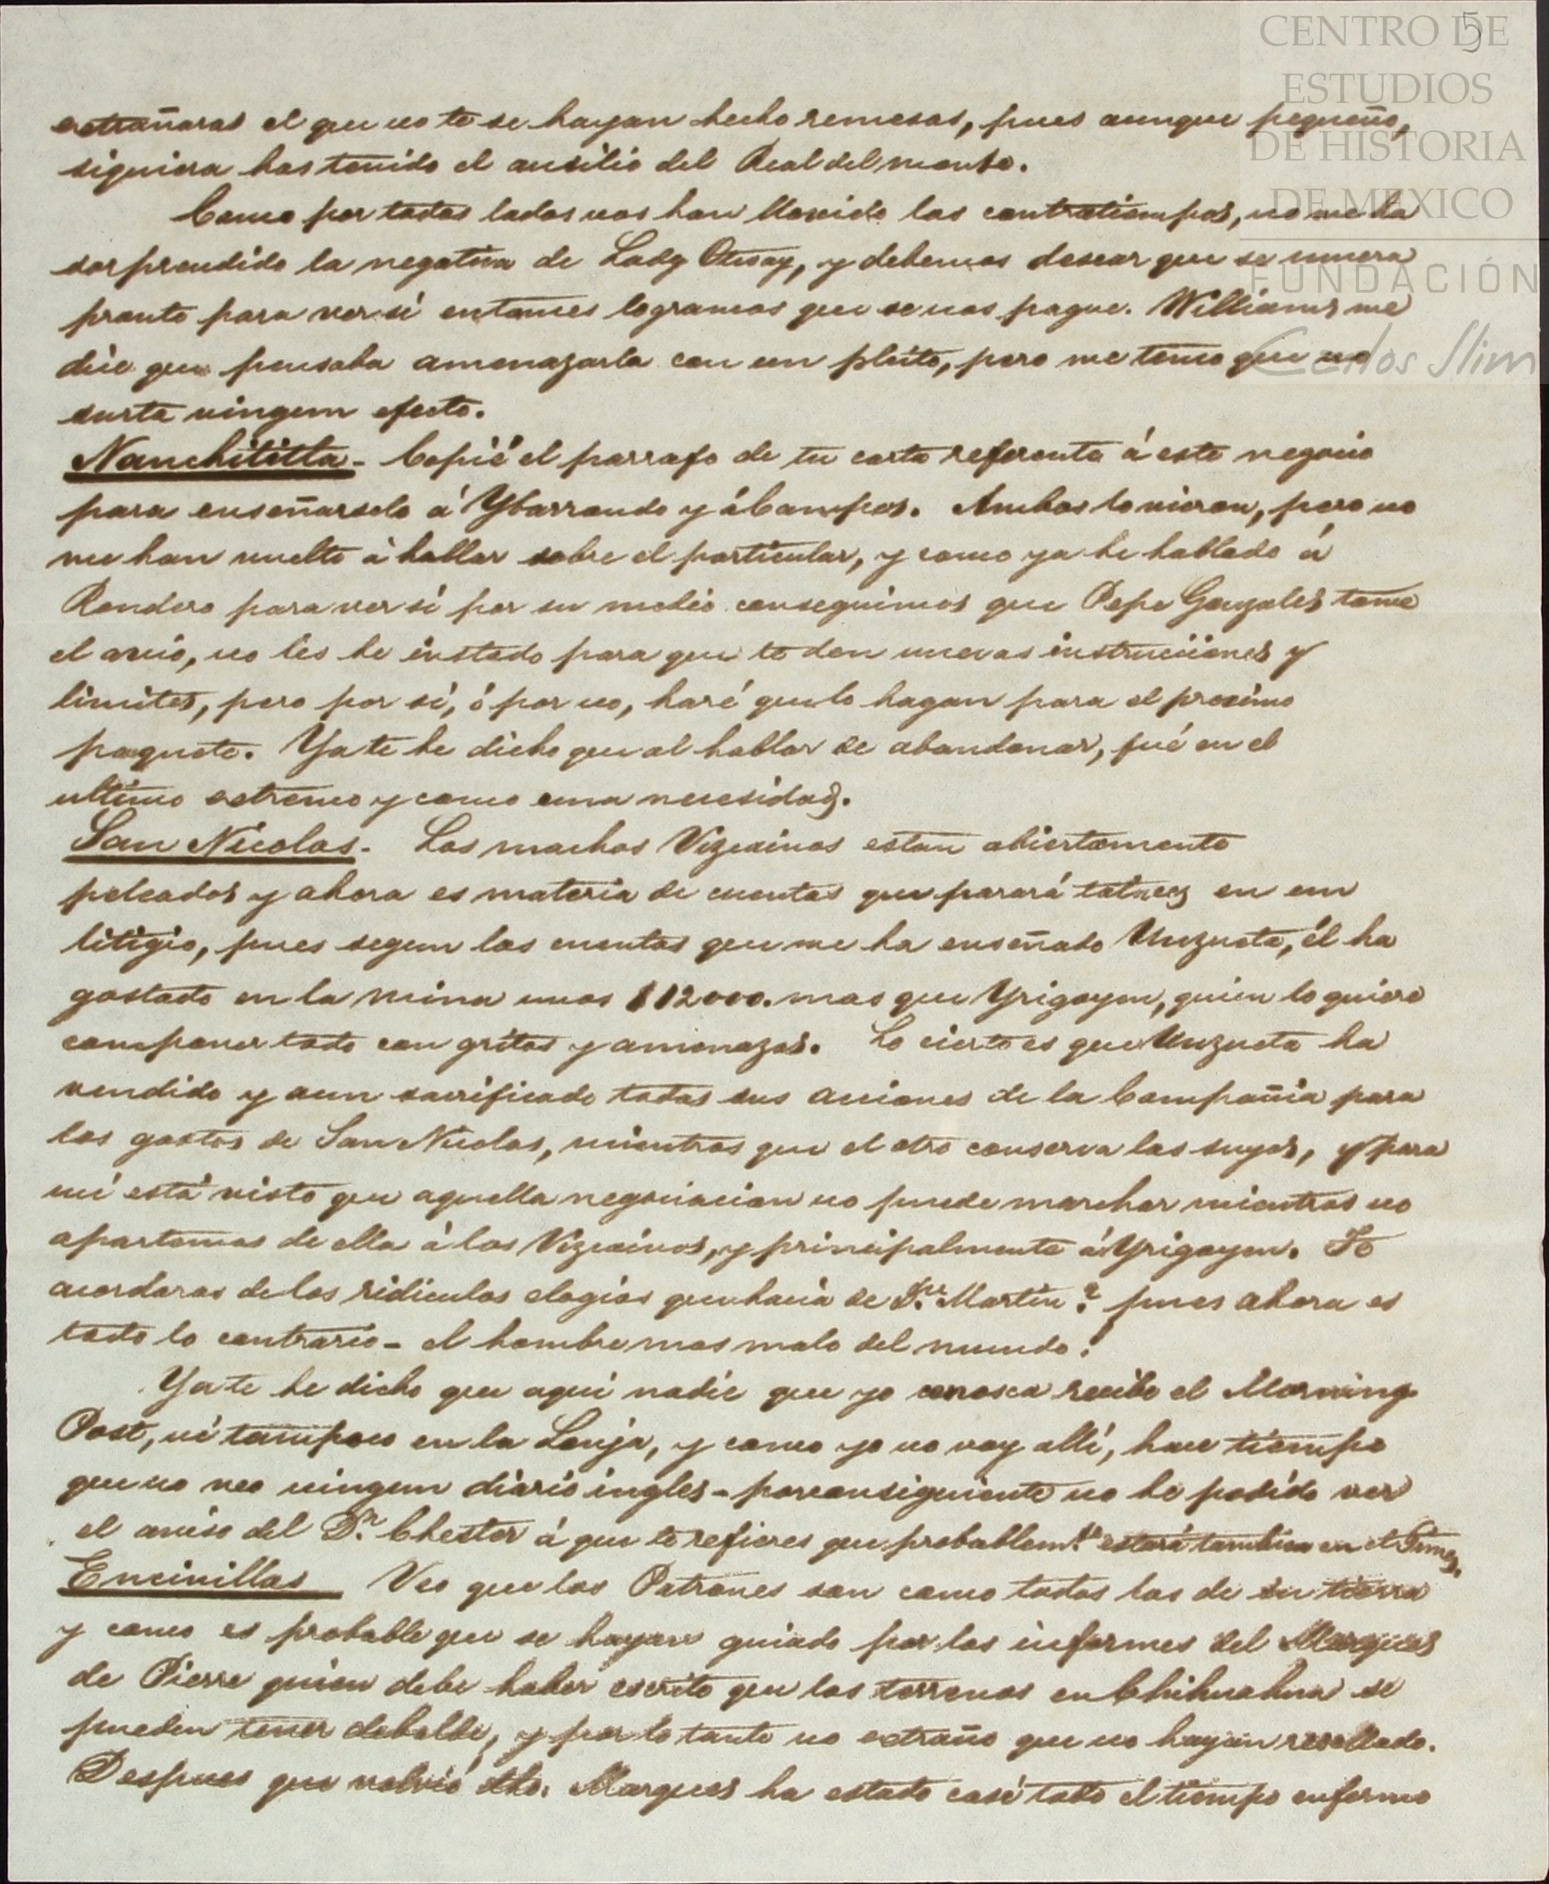 5
CENTRO DE
ESTUDIOS
DE HISTORIA
DE MEXICO
FUNDACIÓN
Carlos Slim
extrañaras el que no te se hayan hecho remesas, pues aunque pequeño,
siquiera has tenido el ausilio del Real del monte.
Como por todos lados nos han llovido los contratiempos, no me ha
sorprendido la negativa de Lady Otway, y debemos desear que se muera
pronto para ver si entonces logramos que se nos pague. Williams me
dice que pensaba amenazarla con un pleito, pero me temo que no
surta ningun efecto.
Nanchititla - Copié el parrafo de tu carta referente á este negocio
para enseñarselo á Ybarrondo y á Campos. Ambos lo vieron, pero no
me han vuelto á hablar sobre el particular, y como ya he hablado á
Rondero para ver si por su medio conseguimos que Pepe Gonzalez tome
el avio, no les he instado para que te den nuevas instrucciones y
limites, pero por sí, ó por no, haré que lo hagan para el proximo
paquete. Ya te he dicho que al hablar de abandonar, fué en el
ultimo extremo y como una necesidad.
San Nicolas - Los machos Vizcainos estan abiertamente
peleados y ahora es materia de cuentas que parará talvez en un
litigio, pues segun las cuentas que me ha enseñado Unzueta, él ha
gastado en la mina unos $12000. mas que Yrigoyen, quien lo quiere
componer todo con gritos y amenazas. Lo cierto es que Unzueta ha
vendido y aun sacrificado todas sus acciones de la Compañia para
los gastos de San Nicolas, mientras que el otro conserva las suyas, y para
mí está visto que aquella negociacion no puede marchar mientras no
apartemos de ella á los Vizcainos, y principalmente á Yrigoyen. Te
acordaras de los ridiculos elogios que hacia de Dn. Martin? pues ahora es
todo lo contrario - el hombre mas malo del mundo!
Ya te he dicho que aqui nadie que yo conosca recibe el Morning
Post, ni tampoco en la Lonja, y como yo no voy allí, hace tiempo
que no veo ningun diario ingles - por consiguiente no he podido ver
el aviso del Dr. Chester á que te refieres que probablemte. estará tambien en el Times.
Encinillas Veo que los Patrones son como todos los de su tierra
y como es probable que se hayan guiado por los informes del Marques
de Pierre quien debe haber escrito que los terrenos en Chihuahua se
pueden tener debalde, y por lo tanto no extraño que no hayan resollado.
Despues que volvió dho. Marques ha estado casi todo el tiempo enfermo